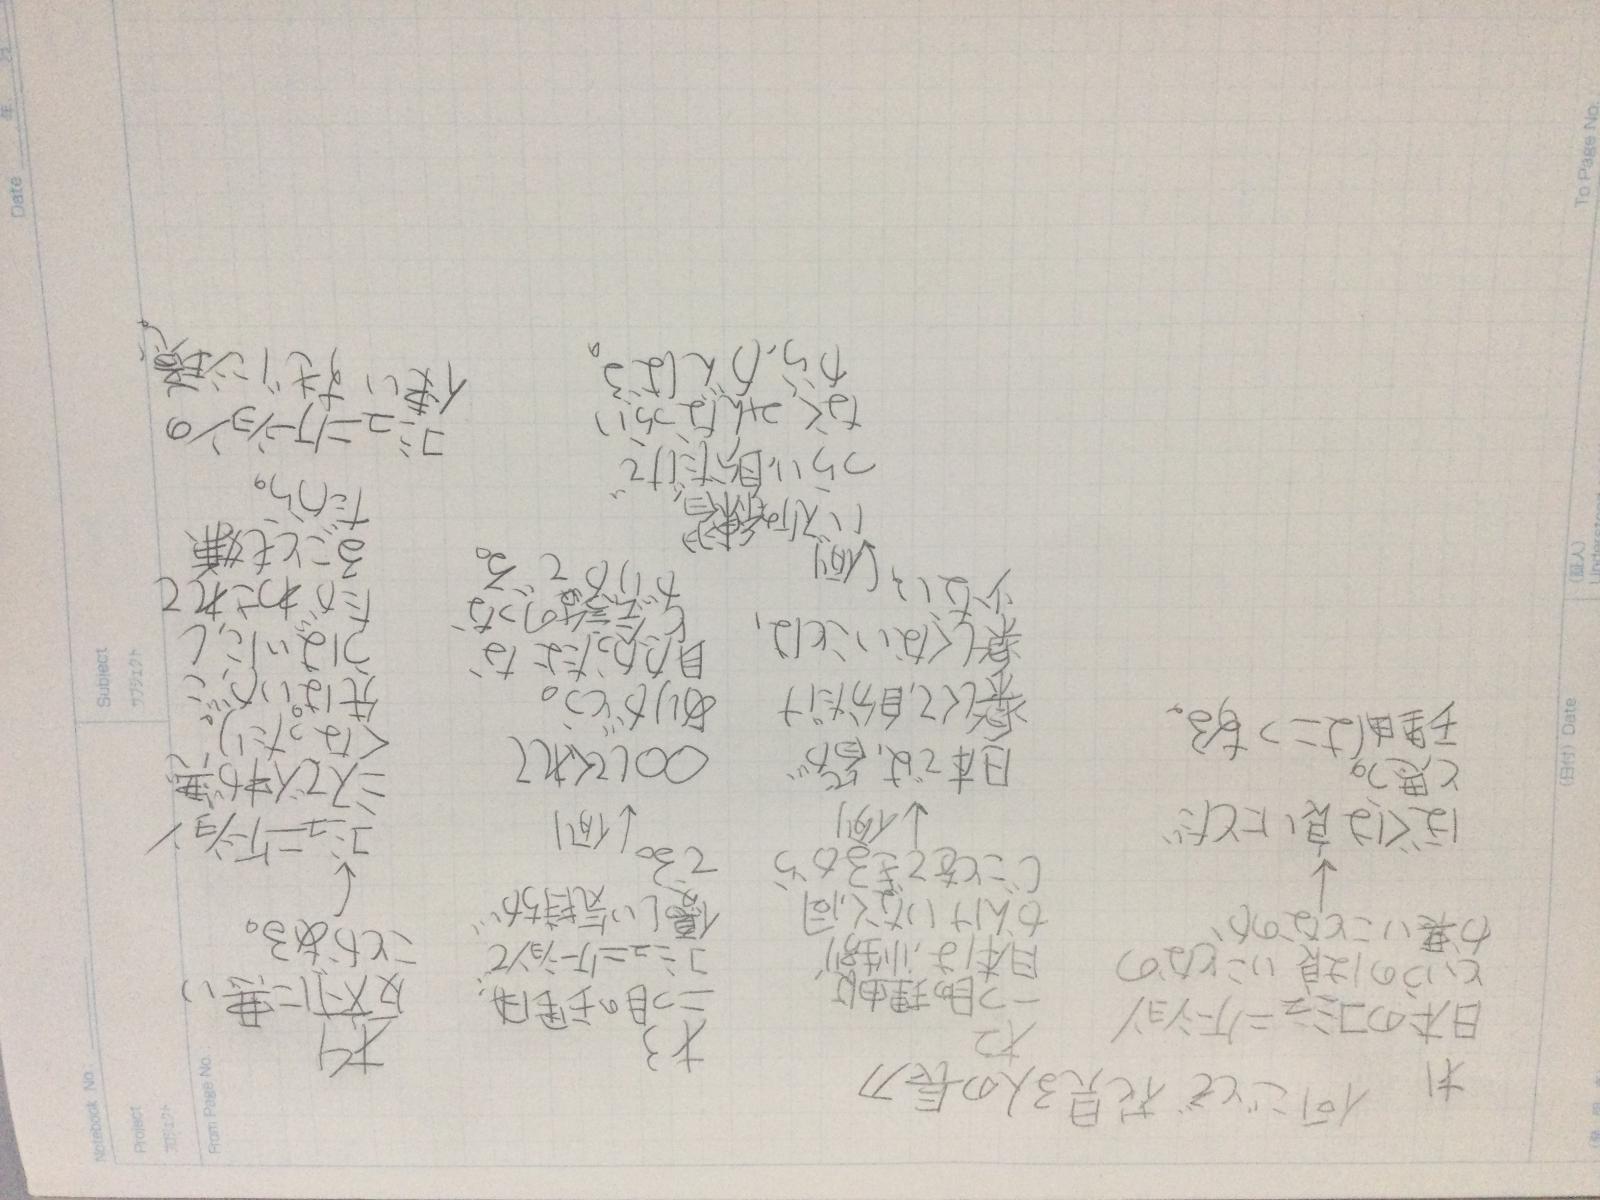 才1 何ごとぞ花見る人の長刀
日本のコミュニケーション
というのは良いことなの
か悪いことなのか
↓
ぼくは良いことだ
と思う。
理由は二つある。
才2
一つ目の理由は
日本は、性別
かんけいなく、同
じことをできるから
↓例
日本では、皆が
楽しくて、自分だけ
楽しくないことは、
少ない。
↓例
いえば練習が
つらい、自分だけで
なく、みんなつらい
から、がんばる。
才3
二つ目の理由は、
コミュニケーションで
優しい気持ちが、
でる。
↓例
〇〇してくれて
ありがとう。
見たかったよな
ど言葉のつな
がりがで
てる。
才4
反対に悪い
ことがある。
コミュニケーション
ミスで中が悪
くなったり。
先ぱいがこ
うはいにし
たがわされて
ることも嫌
だから。
コミュニケーションの
使いすぎに注意。
Notebook No.
Project
プロジェクト
From Page No.
Subject
サブジェクト
Date 年 月
To Page No.
(証人)
(日付) Date